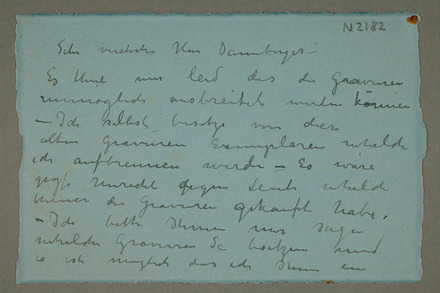 N2182
Sehr verehrter Herr Dannberger –
Es thut mir leid das die Gravuren
unmöglich ausbreitet werden können
– Ich selbst besitze von dies
alten Gravuren Exemplaren which
ich aufbrennen werde – Es wäre
Unrecht gegen Leute
immer die Gravuren gekauft habe.
– Ich bitte Ihnen mir sagen
Gravuren Sie besitzen und
is ist möglich das ich Ihnen ein